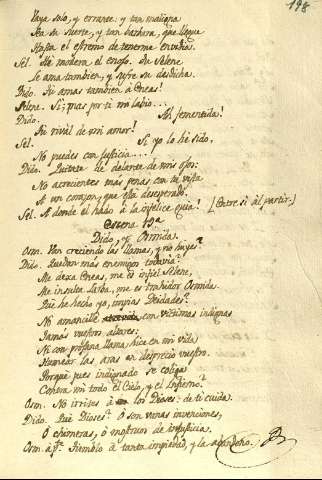 148
Vaya solo, y errante: y tan maligna
Sea su suerte, y tan barbara, que llegue
Hasta el estremo de tenerme envidia.
Sel. Ha modera el enojo. Tu Selene
Le ama tambien, y sufre su desdicha.
Dido. Tu amas tambien à Eneas!
Selene. Si; mas por ti mi labio...
Dido. Ah fementida!
Tu rival de mi amor!
Sel. Si yo lo hè sido,
No puedes con justicia....
Dido. Quitate de delante de mis ojos:
No acrecientes más penas con tu vista
A un corazon, que està desesperado.
Sel. A donde el hado à la infelice guia! (Entre si al partir.)
Escena 19ª
Dido, y Osmida.
Osm. Van creciendo las llamas, y no huyes?
Dido. Quedan más enemigos todavia?
Me dexa Eneas, me es infiel Selene,
Me insulta Iarba, me es trahidor Osmida.
Què he hecho yo, impias Deidades?
No amancille con victimas indignas
Jamàs vuestros altares:
Ni con profana llama hice en mi vida
Humear las aras en desprecio vuestro.
Porquè pues indignado se coliga
Contra mi todo el Cielo, y el Infierno?
Osm. No irrites à los Dioses: de ti cuida.
Dido. Què Dioses? O son vanas invenciones,
O chimeras, ò mostruos de injusticia.
Osm. à p. Tiemblo à tanta impiedad, y la abandono.